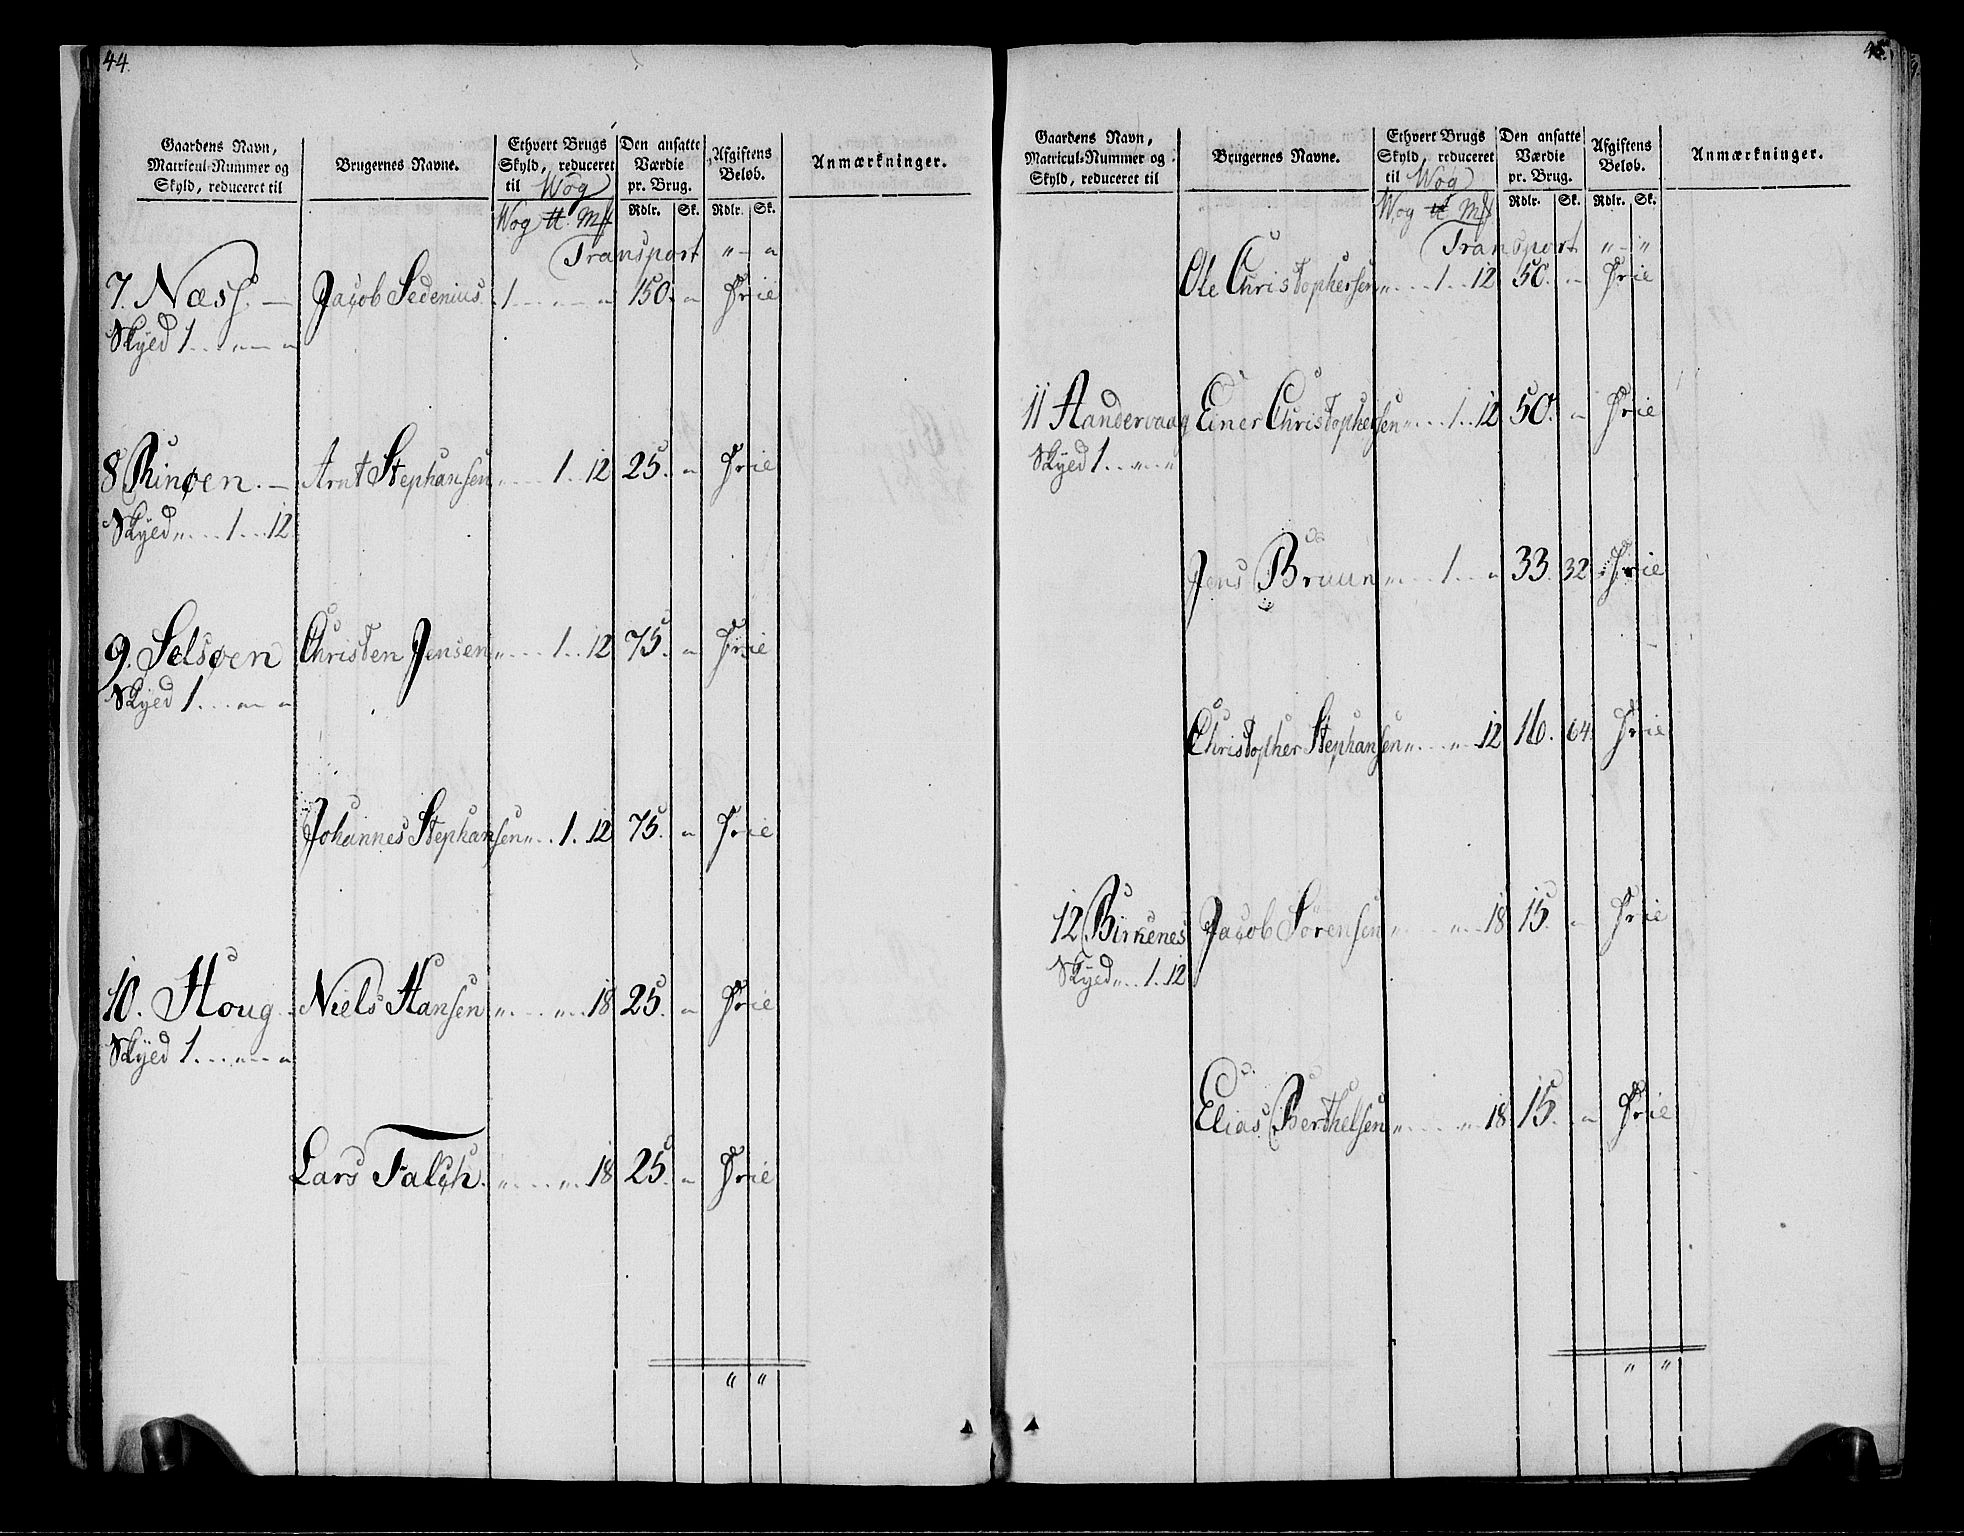 44.
Gaardens Navn, Matricul-Nummer og Skyld, reduceret til
Brugernes Navne.
Ethvert Brugs Skyld, reduceret til Wog
Den ansatte Værdie pr. Brug.
Afgiftens Beløb.
Anmærkninger.
Wog ℔ Mk Rdlr. Sk. Rdlr. Sk.
Transport " - "
7. Næss. — Jacob Sedenius. 1 .. - .. " 150. " Frie
Skyed 1 ... " — "
8 Rinøen. — Arnt Stephansen " .... 1 .. 12 25. " Frie
Skyed " .... 1 ... 12
9. Selsøen Christen Jensen " .... 1 .. 12 75. " Frie
Skyed 1 ... " — "
Johannes Stephansen " ... 1. .12 75. " Frie
10. Houg. Niels Hansen " ..... " .. 18 25. " Frie
Skyed 1 ... " ... "
Lars Falch. " .... " .. 18 25. " Frie
" "
45.
Gaardens Navn, Matricul-Nummer og Skyld, reduceret til
Brugernes Navne.
Ethvert Brugs Skyld, reduceret til Wog
Den ansatte Værdie pr. Brug.
Afgiftens Beløb.
Anmærkninger.
Wog ℔ Mk Rdlr. Sk. Rdlr. Sk.
Transport " - "
Ole Christophersen " .... 1 .. 12 50. " Frie
11 Handervaag Einer Christophersen " .... 1 .. 12 50. " Frie
Skyed 1 .. " .. "
Jens Bruun " .... 1 ... " 33. 32 Frie
Christopher Stephansen " .... " .. 12 16. 64. Frie
12 Birkenes Jacob Sørensen " .... " .. 18 15. " Frie
Skyed " .. 1 .. 12
Elias Berthelsen " .... " .. 18 15. " Frie
" "